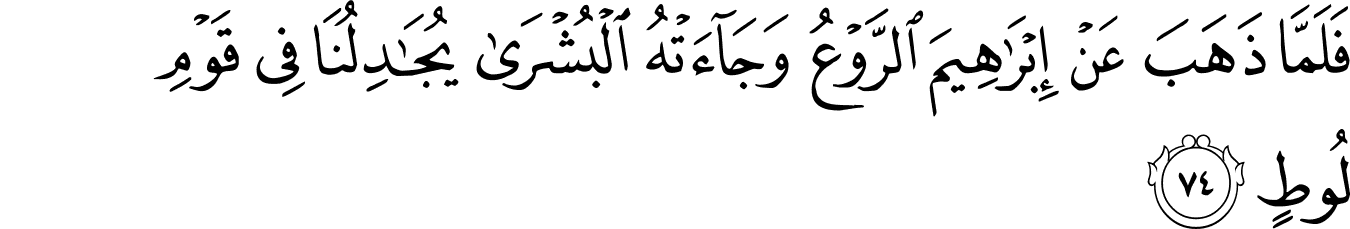 فَلَمَّا ذَهَبَ عَنۡ إِبۡرَٰهِيمَ ٱلرَّوۡعُ وَجَآءَتۡهُ ٱلۡبُشۡرَىٰ يُجَٰدِلُنَا فِى قَوۡمِ
لُوطٍ ٧٤